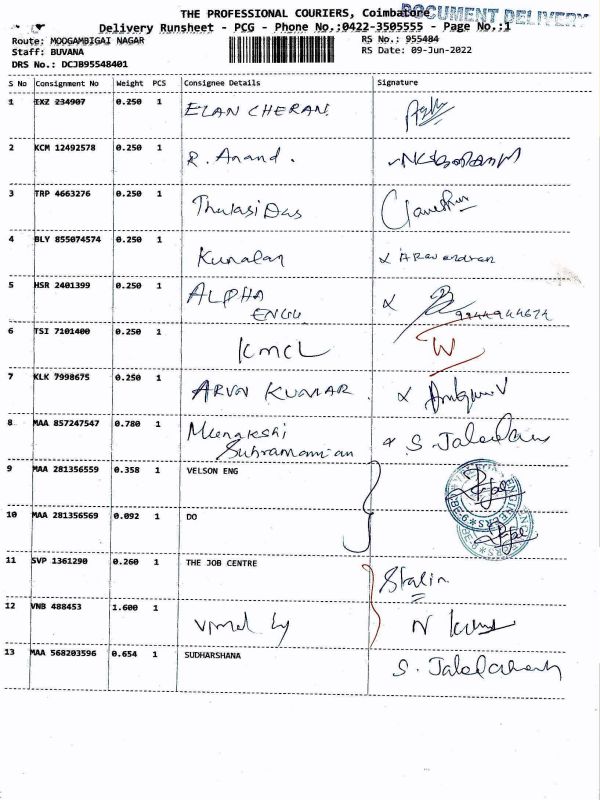 THE PROFESSIONAL COURIERS, Coimbatore
DOCUMENT DELIVERY
Delivery Runsheet - PCG - Phone No.;0422-3505555 - Page No.;1
Route: MOOGAMBIGAI NAGAR RS No.: 955484
Staff: BUVANA RS Date: 09-Jun-2022
DRS No.: DCJB95548401
S No Consignment No Weight PCS Consignee Details Signature
1 IXZ 234907 0.250 1 ELAN CHERAN
2 KCM 12492578 0.250 1 R. Anand.
3 TRP 4663276 0.250 1 Thulasi Das
4 BLY 855074574 0.250 1 Kunalan
5 HSR 2401399 0.250 1 ALPHA
ENGG
6 TSI 7101400 0.250 1 KMCL
7 KLK 7998675 0.250 1 ARUN KUMAR.
8 MAA 857247547 0.780 1 Meenakshi
Subramanian
9 MAA 281356559 0.358 1 VELSON ENG
10 MAA 281356569 0.092 1 DO
11 SVP 1361290 0.260 1 THE JOB CENTRE Stalin
12 VNB 488453 1.600 1
13 MAA 568203596 0.654 1 SUDHARSHANA